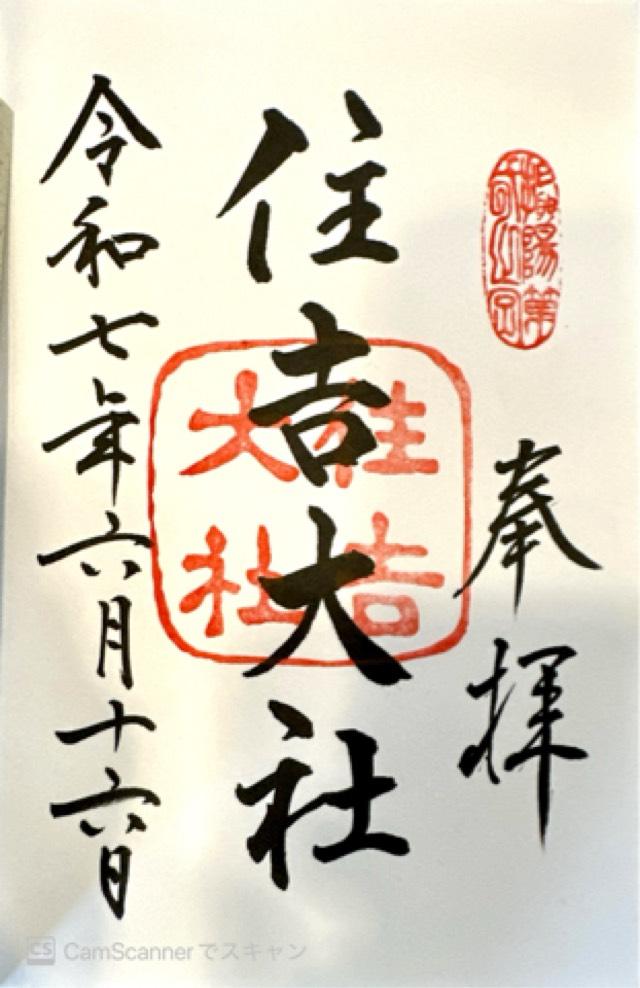 奉拝
住吉大社
住吉
大社
令和七年六月十六日
CS CamScannerでスキャン